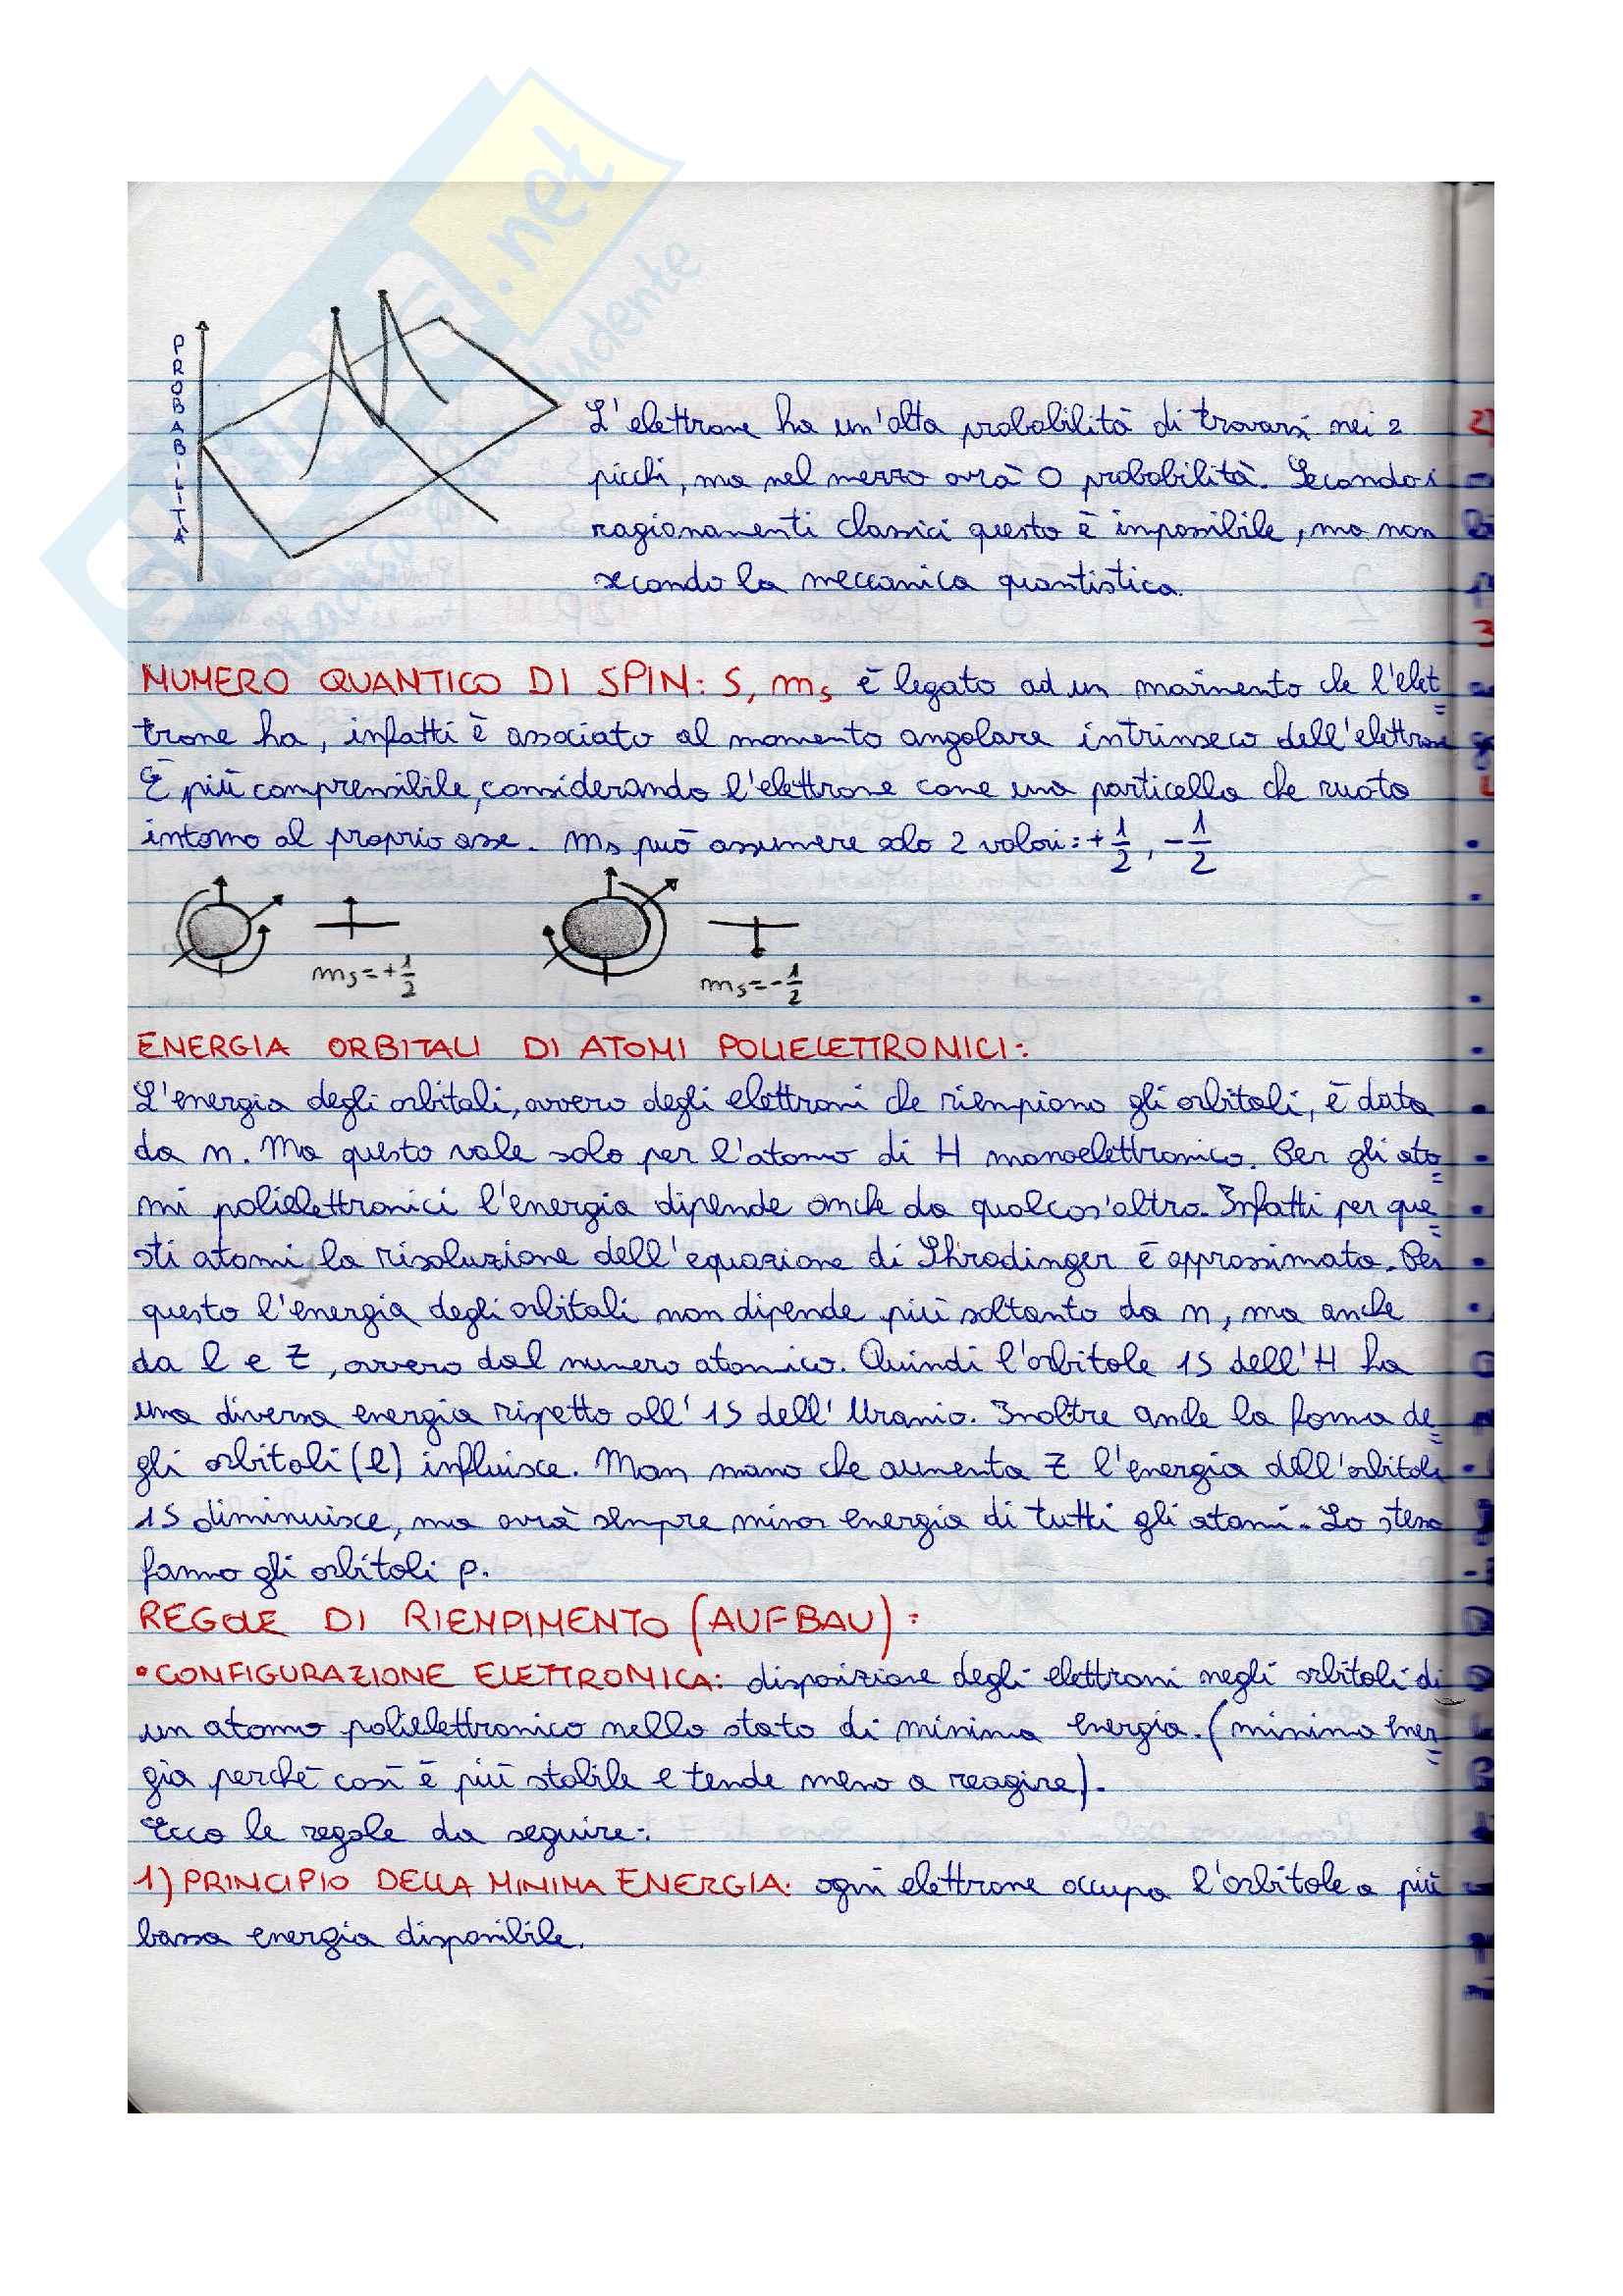 PROBABILITÀ
L'elettrone ha un'alta probabilità di trovarsi nei 2
picchi, ma nel mezzo avrà 0 probabilità. Secondo i
ragionamenti classici questo è impossibile, ma non
secondo la meccanica quantistica.
NUMERO QUANTICO DI SPIN: S, ms è legato ad un movimento che l'elet
trone ha, infatti è associato al momento angolare intrinseco dell'elettrone
È più comprensibile, considerando l'elettrone come una particella che ruota
intorno al proprio asse. ms può assumere solo 2 valori: +1/2, -1/2
ms=+1/2
ms=-1/2
ENERGIA ORBITALI DI ATOMI POLIELETTRONICI:
L'energia degli orbitali, ovvero degli elettroni che riempiono gli orbitali, è data
da n. Ma questo vale solo per l'atomo di H monoelettronico. Per gli ato
mi polielettronici l'energia dipende anche da qualcos'altro. Infatti per que
sti atomi la risoluzione dell'equazione di Shrodinger è approssimata. Per
questo l'energia degli orbitali non dipende più soltanto da n, ma anche
da l e Z, ovvero dal numero atomico. Quindi l'orbitale 1S dell'H ha
una diversa energia rispetto all'1S dell'Uranio. Inoltre anche la forma de
gli orbitali (l) influisce. Man mano che aumenta Z l'energia dell'orbitale
1S diminuisce, ma avrà sempre minor energia di tutti gli atomi. Lo stesso
fanno gli orbitali p.
REGOLE DI RIEMPIMENTO (AUFBAU):
•CONFIGURAZIONE ELETTRONICA: disposizione degli elettroni negli orbitali di
un atomo polielettronico nello stato di minima energia. (minima ener
gia perché così è più stabile e tende meno a reagire).
Ecco le regole da seguire:
1) PRINCIPIO DELLA MINIMA ENERGIA: ogni elettrone occupa l'orbitale a più
bassa energia disponibile.
.net